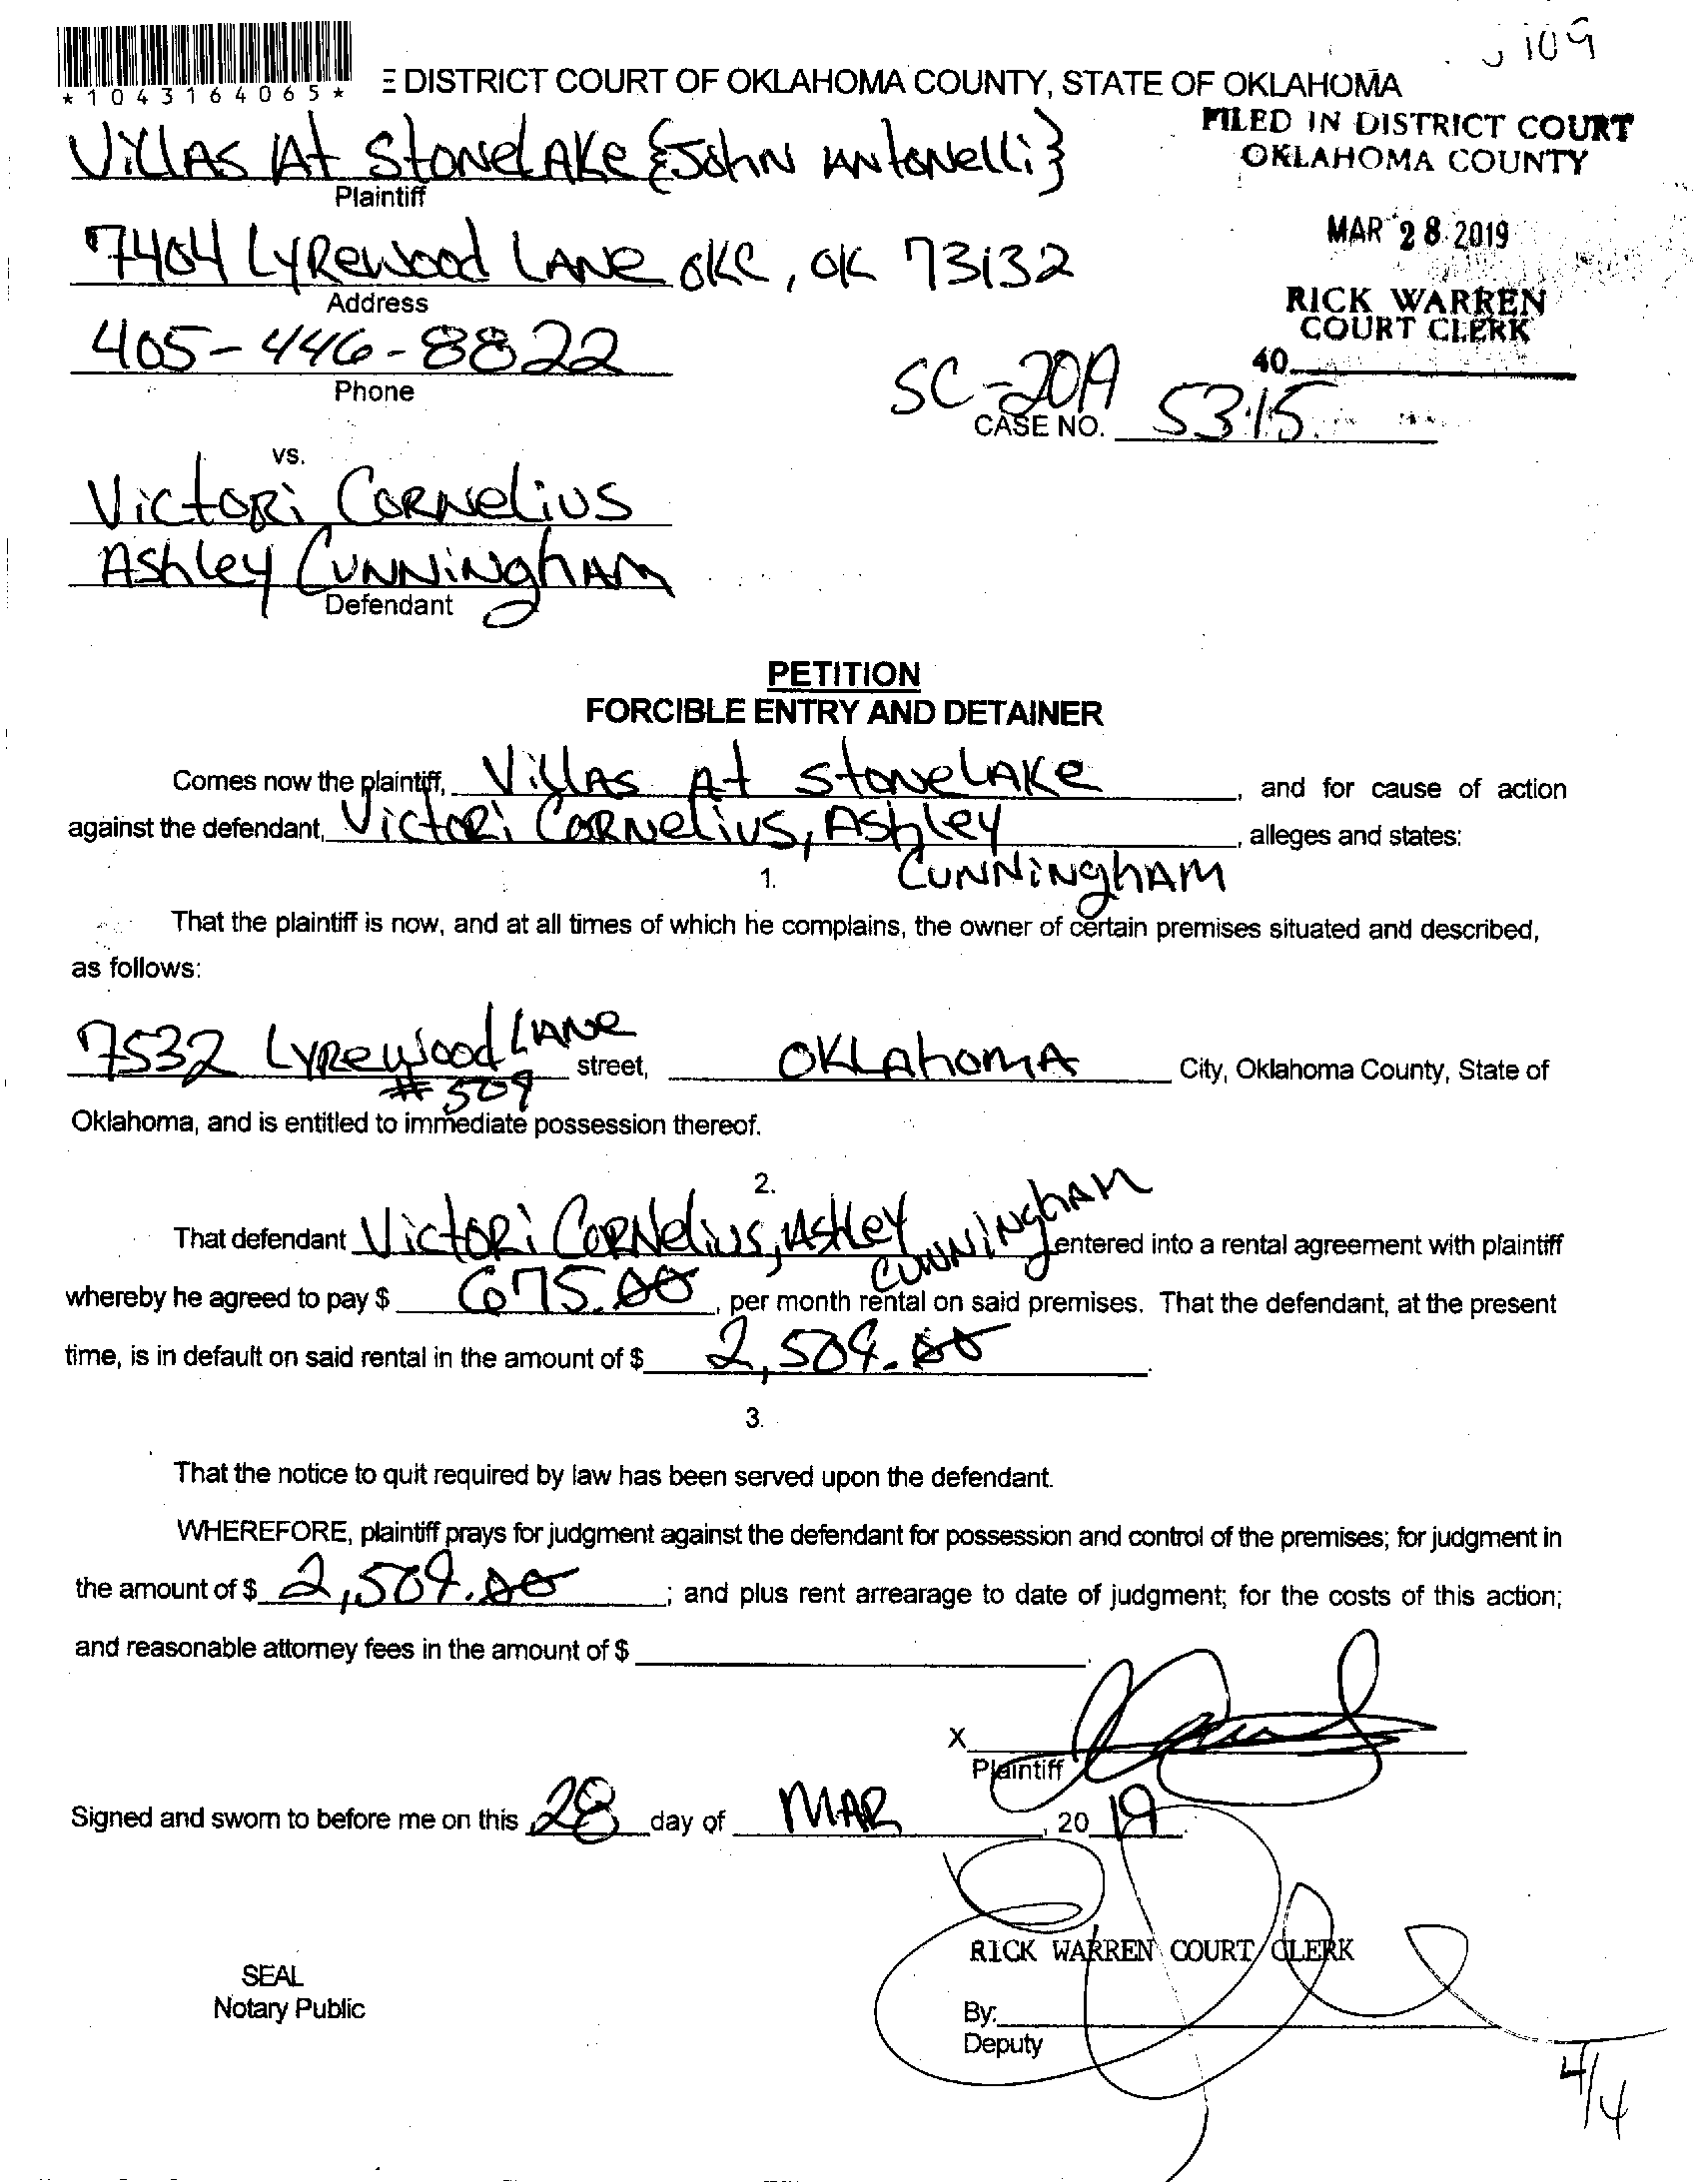 J109
*1043164065*
E DISTRICT COURT OF OKLAHOMA COUNTY, STATE OF OKLAHOMA
FILED IN DISTRICT COURT
OKLAHOMA COUNTY
Villas At Stonelake {John Antonelli}
Plaintiff
MAR 28 2019
7404 Lyrewood Lane OKC, OK 73132
Address
RICK WARREN
COURT CLERK
405-446-8822
Phone
40
SC-2019
CASE NO. 5315
vs.
Victori Cornelius
Ashley Cunningham
Defendant
PETITION
FORCIBLE ENTRY AND DETAINER
Comes now the plaintiff, Villas At Stonelake, and for cause of action
against the defendant, Victori Cornelius, Ashley, alleges and states:
Cunningham
1.
That the plaintiff is now, and at all times of which he complains, the owner of certain premises situated and described,
as follows:
7532 Lyrewood Lane street, Oklahoma City, Oklahoma County, State of
#509
Oklahoma, and is entitled to immediate possession thereof.
2.
That defendant Victori Cornelius, Ashley Cunningham entered into a rental agreement with plaintiff
whereby he agreed to pay $ 675.00, per month rental on said premises. That the defendant, at the present
time, is in default on said rental in the amount of $ 2,509.00.
3.
That the notice to quit required by law has been served upon the defendant.
WHEREFORE, plaintiff prays for judgment against the defendant for possession and control of the premises; for judgment in
the amount of $ 2,509.00; and plus rent arrearage to date of judgment; for the costs of this action;
and reasonable attorney fees in the amount of $
X
Plaintiff
Signed and sworn to before me on this 28 day of MAR, 2019.
RICK WARREN COURT CLERK
SEAL
Notary Public
By:
Deputy
4/4